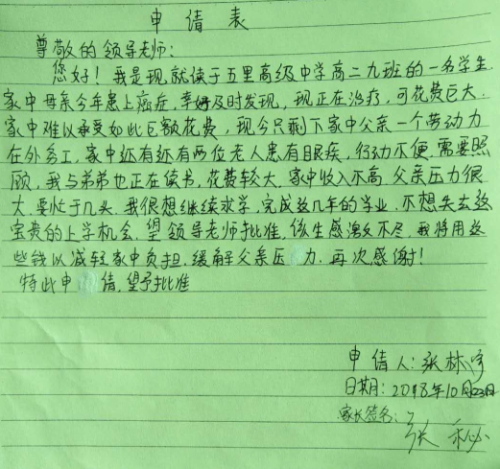 申请表
尊敬的领导老师:
您好!我是现就读于五里高级中学高二九班的一名学生
家中母亲今年患上癌症,幸好及时发现,现正在治疗,可花费巨大.
家中难以承受如此巨额花费,现今只剩下家中父亲一个劳动力
在外务工,家中还有还有两位老人患有眼疾,行动不便.需要照
顾,我与弟弟也正在读书,花费较大.家中收入不高.父亲压力很
大.要忙于几头.我很想继续求学,完成这几年的学业,不想失去这
宝贵的上学机会.望领导老师批准.该生感激不尽.我将用这
些钱以减轻家中负担.缓解父亲压力.再次感谢!
特此申请,望予批准
申请人:张林宇
日期:2018年10月23日
家长签名:
张秘